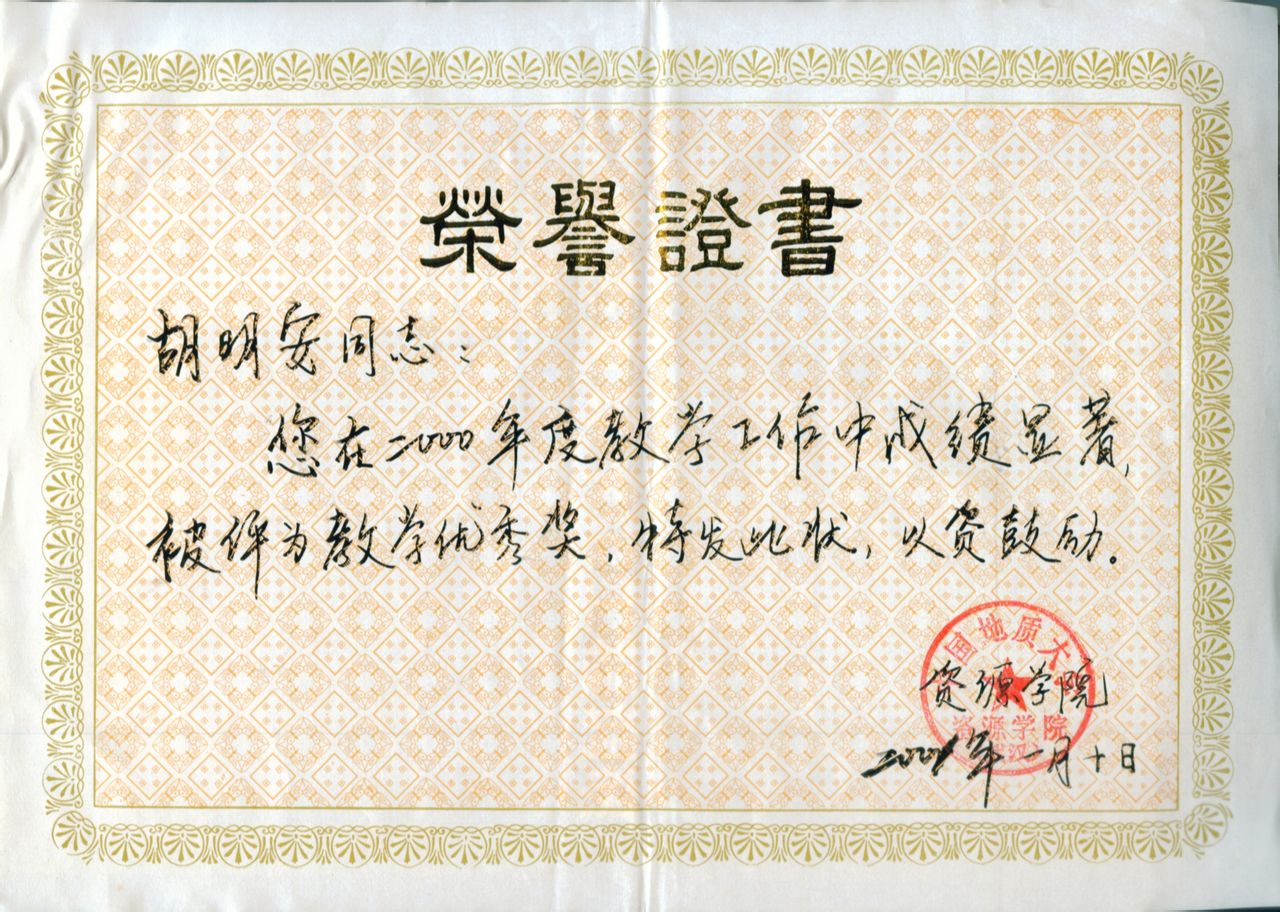 榮譽證書
胡明安同志：
您在2000年度教学工作中成绩显著，
被评为教学优秀奖，特发此状，以资鼓励。
国地质大
资源学院
资源学院
2001年一月十日